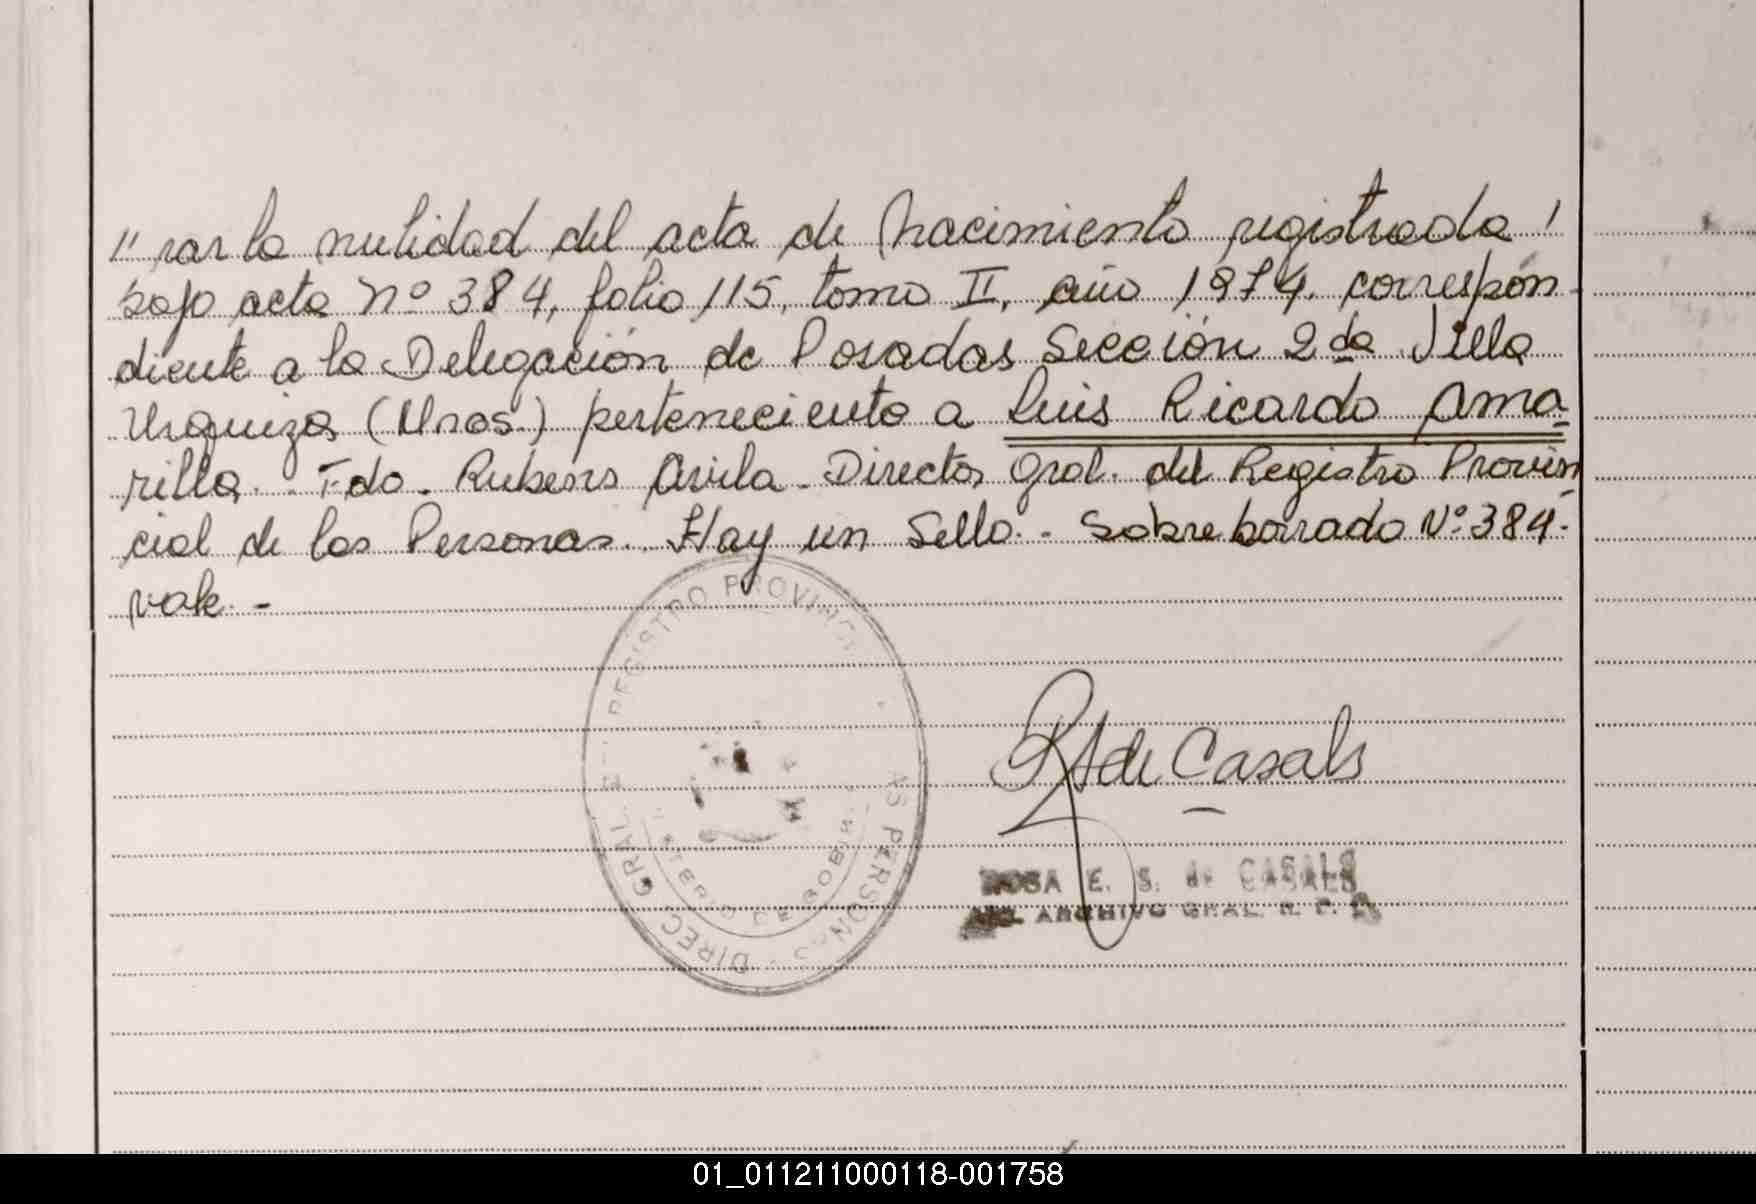 "rar la nulidad del acta de nacimiento registrada!
bajo acta Nº 384, folio 115, tomo II, año 1974. correspon
diente a la Delegación de Posadas Sección 2da Villa
Urquiza (Mnes.) perteneciente a Luis Ricardo Ama=
rilla. Fdo. Rubens Avila - Director Gral. del Registro Provin
cial de las Personas. Hay un Sello. - Sobreborrado Nº 384.
vale. -
REGISTRO PROVINC
AS PERSONAS
DIREC. GRAL
DE GOB
de Casals
ROSA E. S. de CASALS
ARCHIVO GRAL. R. P.
01_011211000118-001758